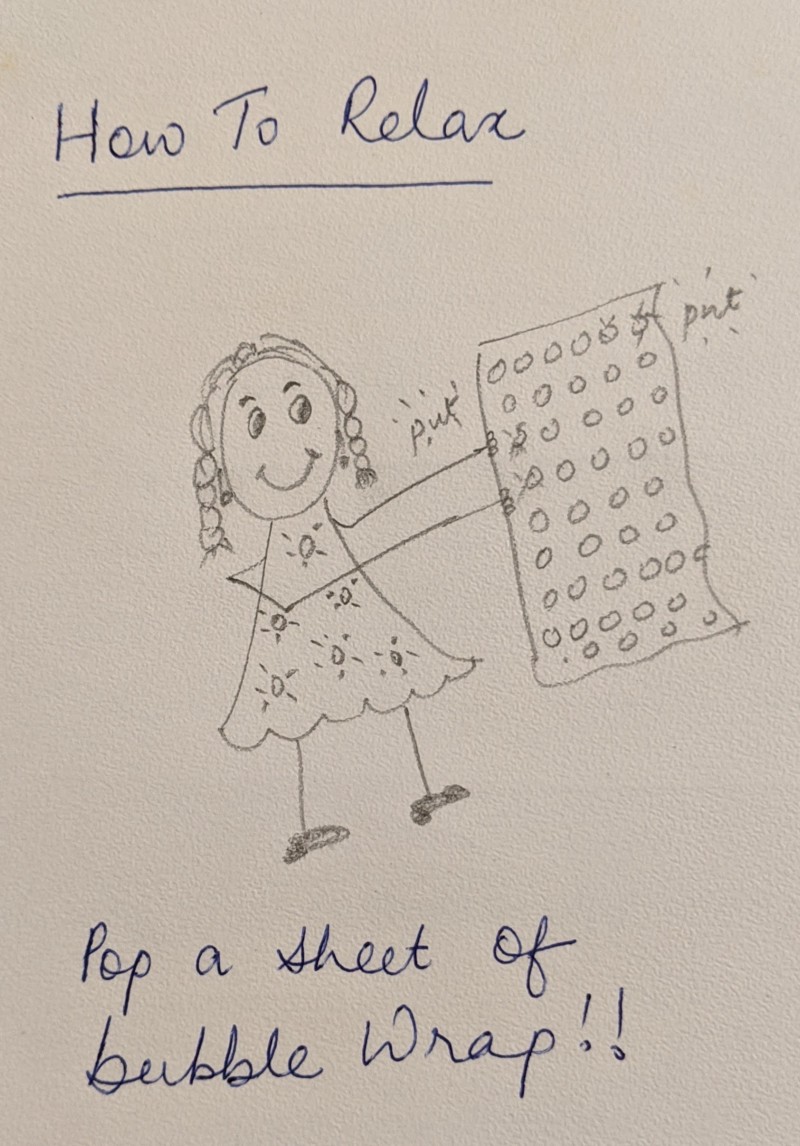 How To Relax
put
put
Pop a sheet of
bubble Wrap!!